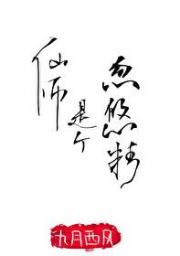 仙师
是个
忽悠精
九月西风